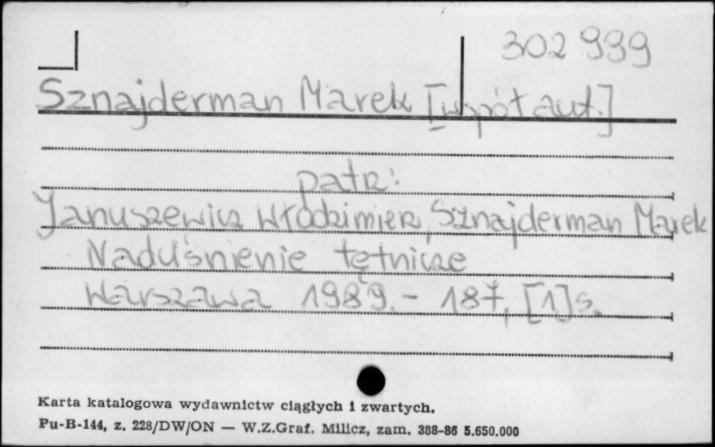 302 999
Sznajderman Marek [współaut.]
patrz:
Januszewicz Włodzimierz, Sznajderman Marek
Naduśnienie tętnicze
Warszawa 1989. - 187, [1] s.
Karta katalogowa wydawnictw ciągłych i zwartych.
Pu-B-144, z. 228/DW/ON — W.Z.Graf. Milicz, zam. 388-86 5.650.000